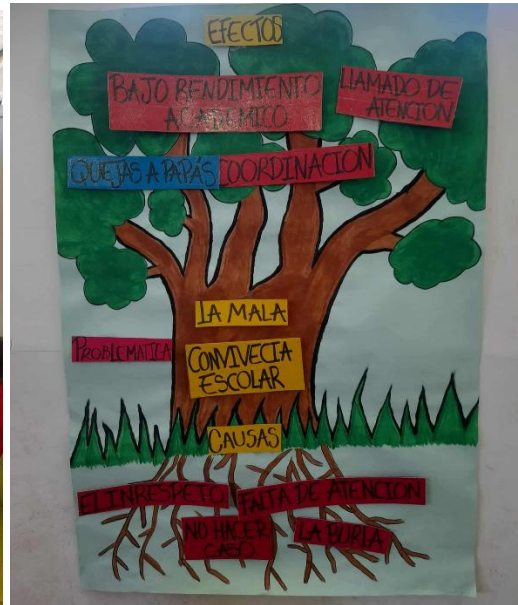 EFECTOS
BAJO RENDIMIENTO
ACADEMICO
LLAMADO DE
ATENCION
QUEJAS A PAPÁS
COORDINACION
LA MALA
PROBLEMATICA
CONVIVECIA
ESCOLAR
CAUSAS
EL INRESPETO
FALTA DE ATENCION
NO HACER
CASO
LA BURLA